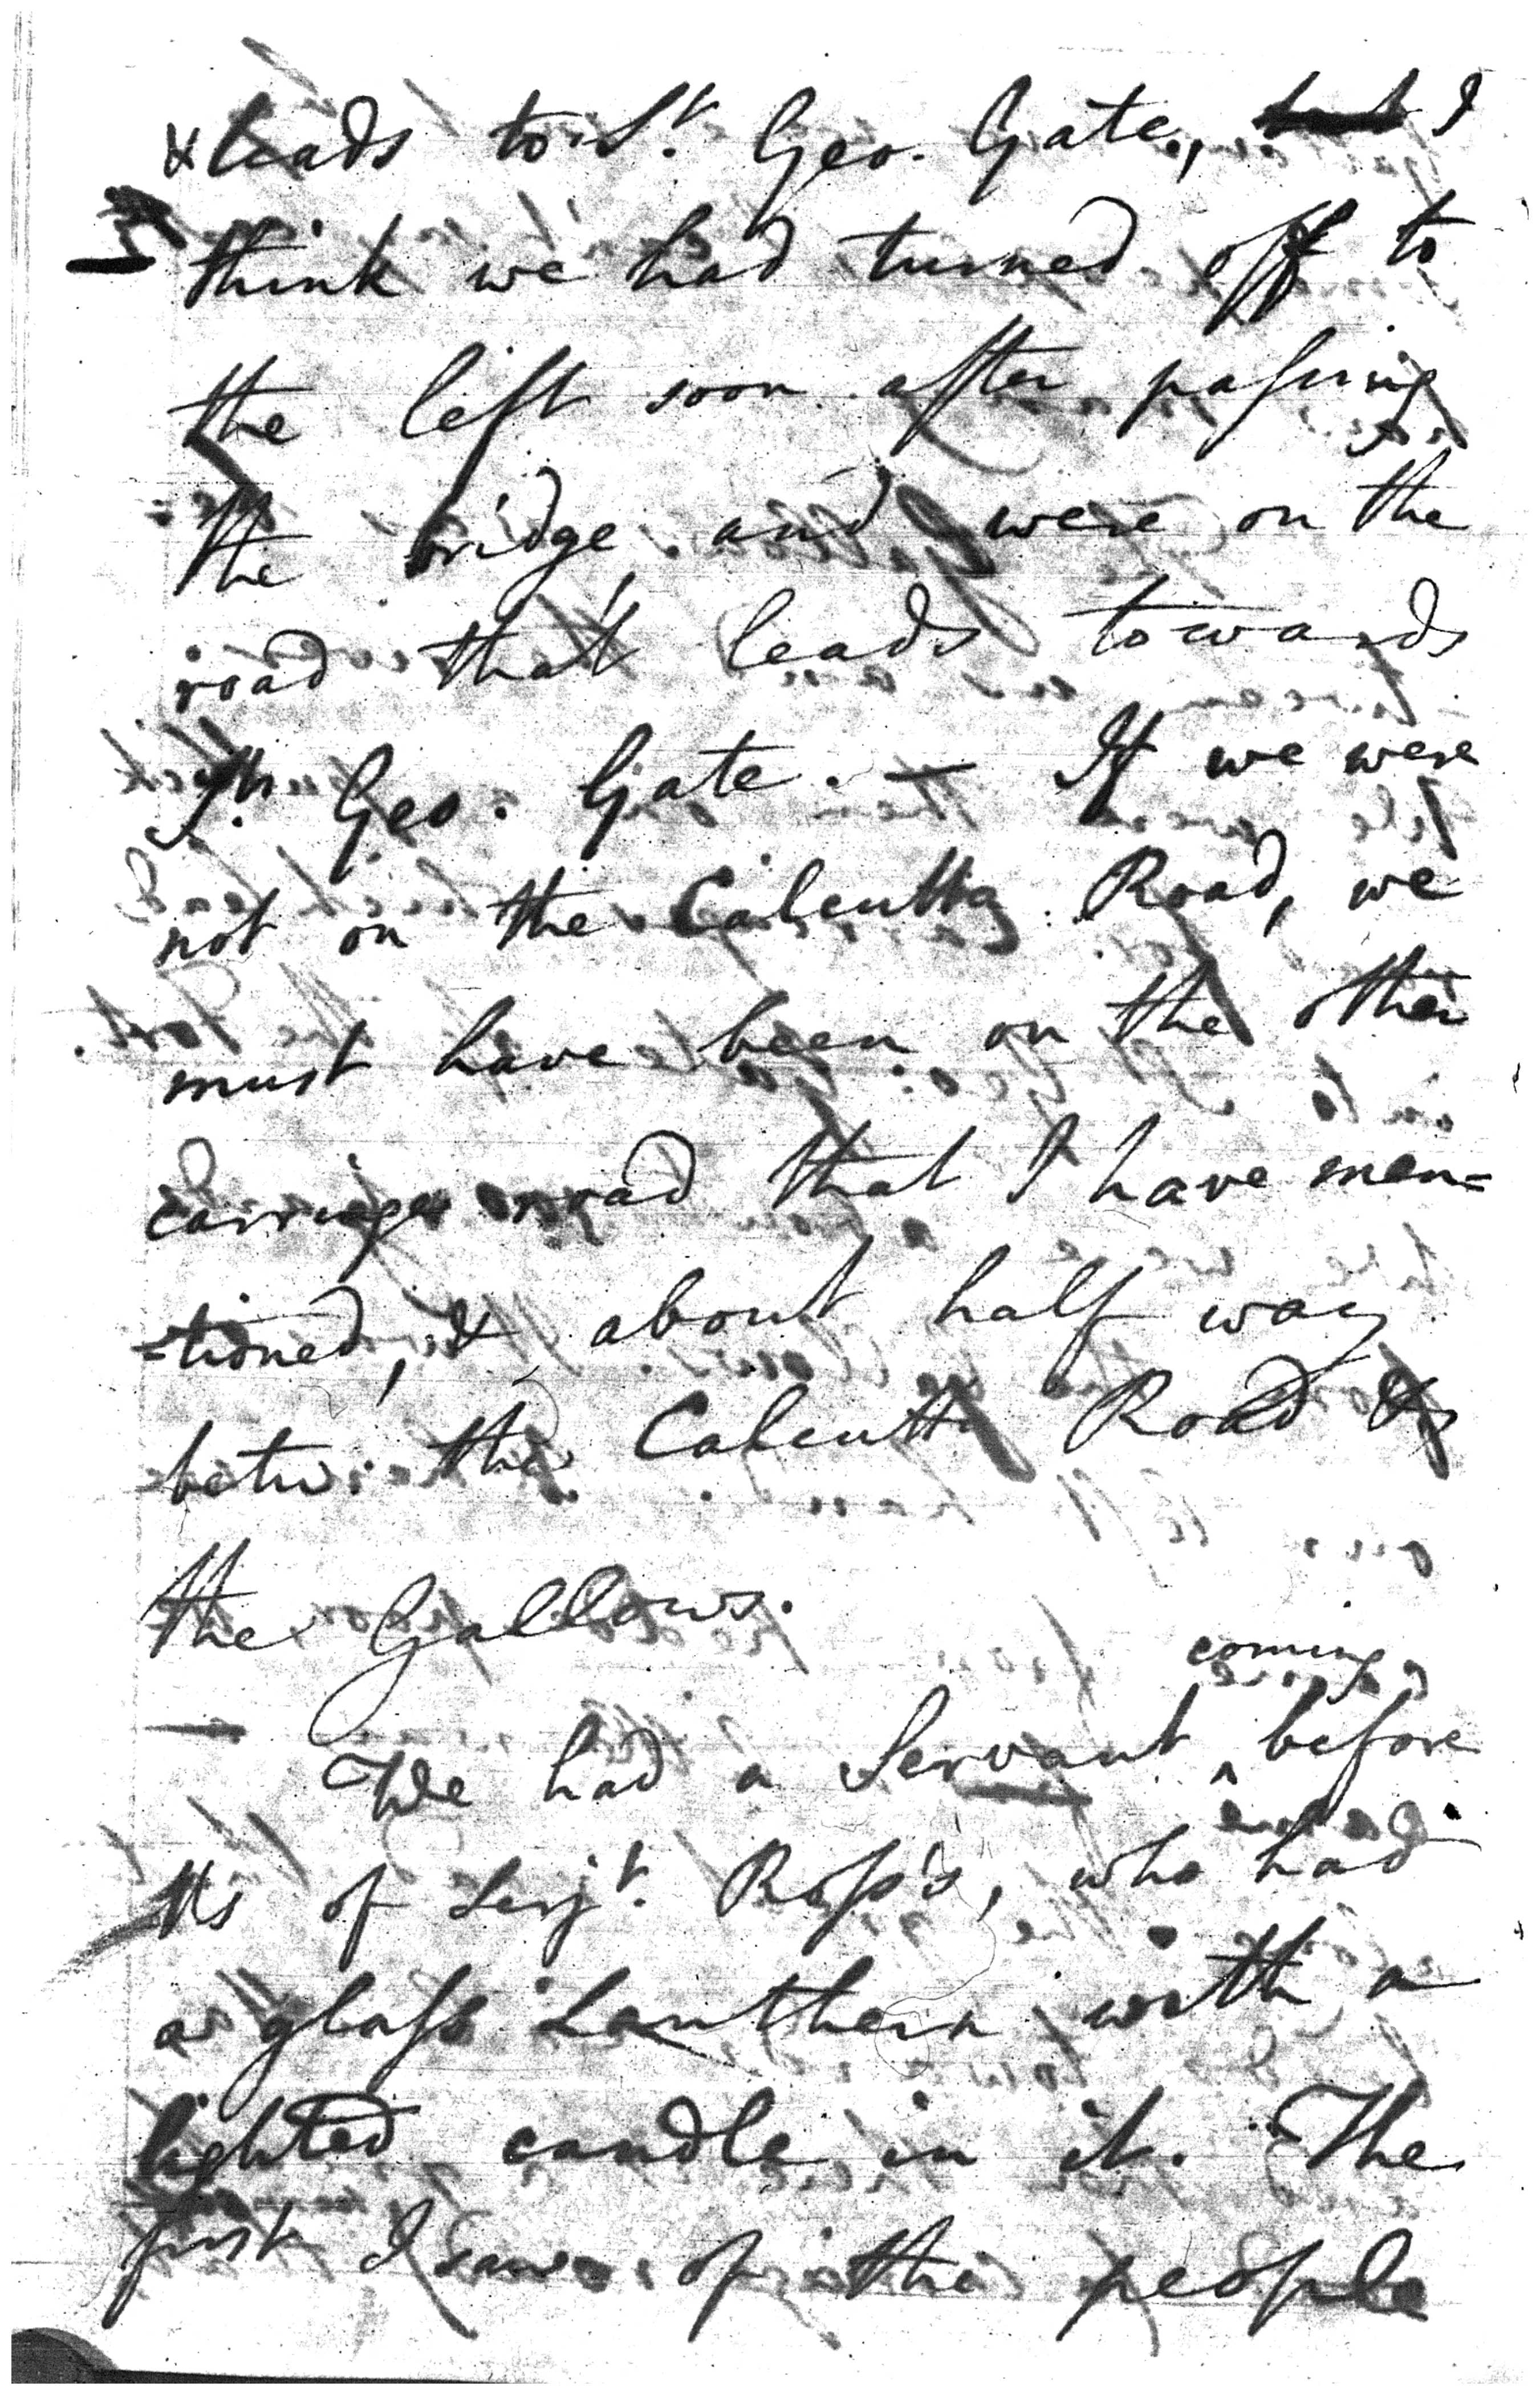 & leads to St. Geo. Gate, I
think we had turned off to
the left soon after passing
the bridge, and were on the
road that leads towards
St. Geo. Gate. — If we were
not on the Calcutta Road, we
must have been on the other
carriage road that I have men=
=tioned, & about half way
betw: the Calcutta Road &
the Gallows.
coming
— We had a Servant ^ before
us of Serjt. Ross's, who had
a glass Lanthern with a
lighted candle in it. The
first I saw of the people